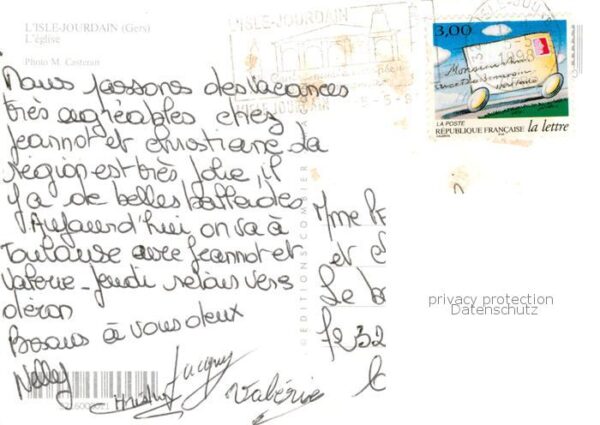 L'ISLE-JOURDAIN (Gers)
L'église
Photo M. Casteran
L'ISLE-JOURDAIN
L'ISLE-JOURDAIN
5-5-
1998
3,00
LA POSTE
RÉPUBLIQUE FRANÇAISE la lettre
Nous passons des vacances
très agréables chez
Jeannot et christiane La
Région est très jolie, il
y a de belles ballades
Aujourd'hui on va à
Toulouse avec Jeannot et
Valerie - jeudi
Bisous à vous deux
Nelly
Jacguy
Valérie
©EDITIONS COMBIER
Mme
et
Le
F232
privacy protection
Datenschutz